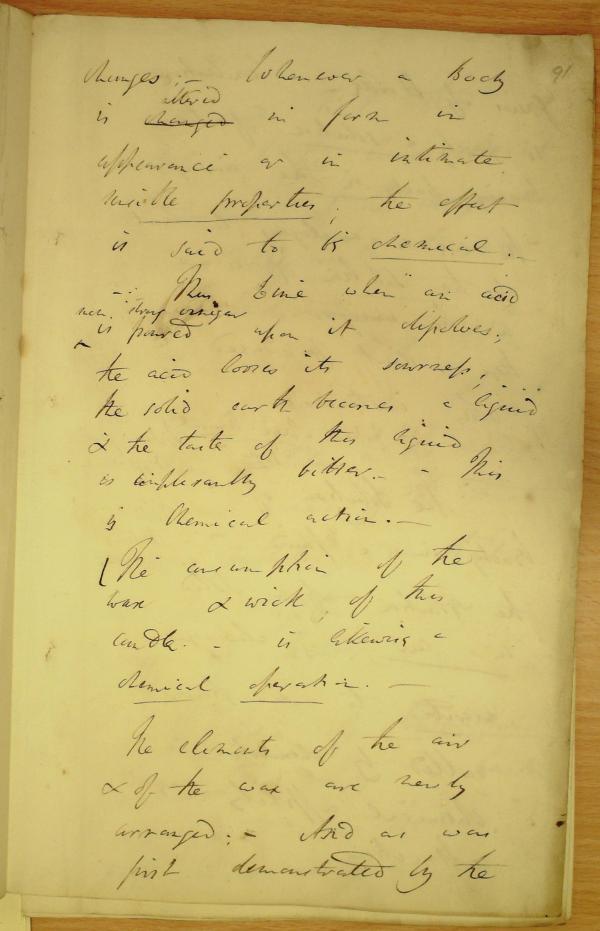 91
changes; – Whenever a Body
altered
is changed in form in
appearance or in intimate
visible properties, the effect
is said to be chemical. –
– Thus Lime when an acid
strong vinegar
is poured upon it dissolves;
the acid looses its sourness,
the solid earth becomes a liquid
& the taste of this liquid
is unpleasantly bitter. – – This
is Chemical action. –
The consumption of the
wax & wick, of this
candle. – is likewise a
chemical operation. –
The elements of the air
& of the wax are newly
arranged; – And as was
first demonstrated by the